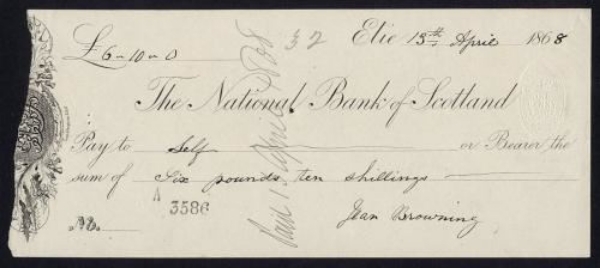 £6-10-0
32
Elie 13th April 1868
The National Bank of Scotland
Pay to Self or Bearer the
sum of Six pounds ten shillings
A
3586
No.
Jean Browning
Paid 15 April 1868